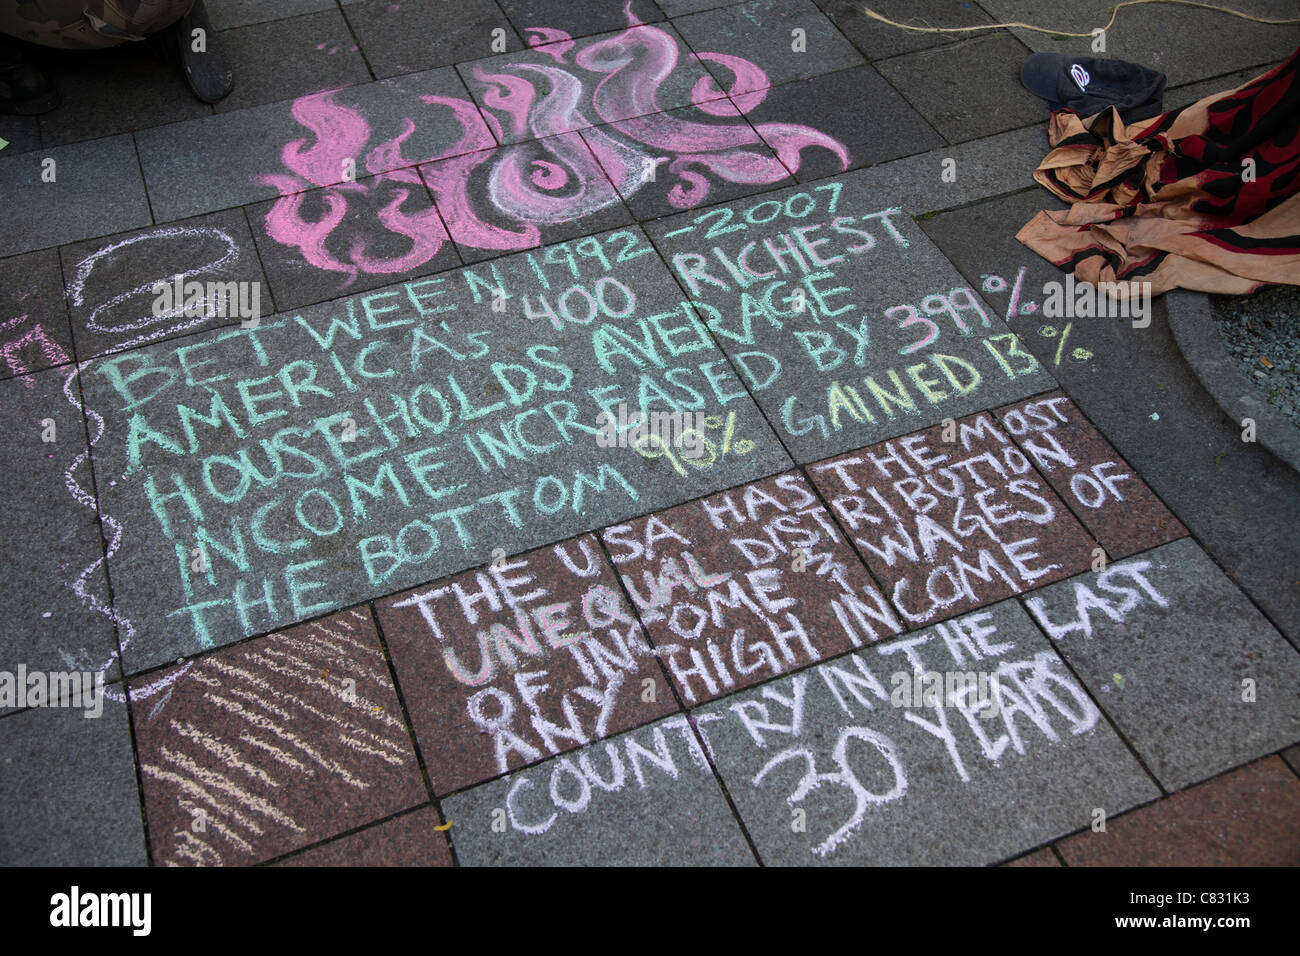 BETWEEN 1992-2007
AMERICA'S 400 RICHEST
HOUSEHOLDS AVERAGE
INCOME INCREASED BY 399%
THE BOTTOM 90% GAINED 13%
THE USA HAS THE MOST
UNEQUAL DISTRIBUTION
OF INCOME & WAGES OF
ANY HIGH INCOME
COUNTRY IN THE LAST
30 YEARS
alamy
Image ID: C831K3
www.alamy.com